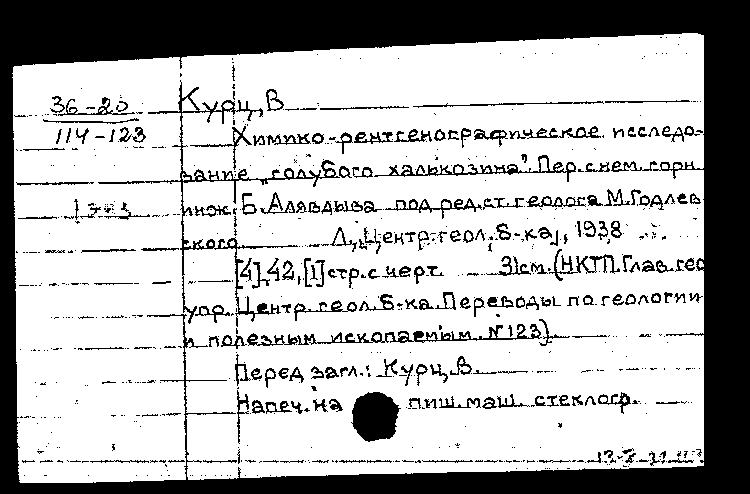 36-20
114-123
Курц, В
Химико-рентгенографическое исследо-
вание „голубого халькозина". Пер. с нем. горн
инж. Б. Алявдыва под ред. ст. геолога М. Годлев
ского Л, „Центр. геол. б-ка", 1938
[4], 42, [1] стр. с черт. 31 см. (НКТП. Глав. гео
упр. Центр. геол. б-ка. Переводы по геологии
и полезным ископаемым. №123).
Перед загл.: Курц, В.
Напеч. на пиш. маш. стеклогр.